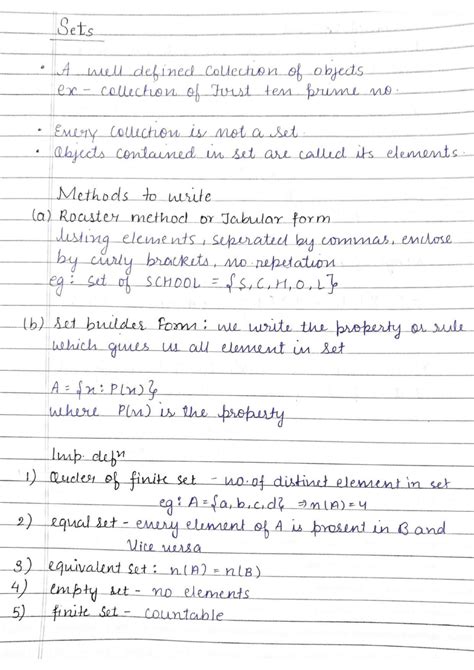 Sets
• A well defined collection of objects
ex - collection of First ten prime no.
• Every collection is not a set.
• Objects contained in set are called its elements.
Methods to write
(a) Roaster method or Tabular form
listing elements, seperated by commas, enclose
by curly brackets, no repetation
eg: set of SCHOOL = {S, C, H, O, L}
(b) Set builder Form: we write the property or rule
which gives us all element in set
A = {x : P(x)}
where P(x) is the property
Imp. defⁿ
1) Order of finite set - no. of distinct element in set
eg: A = {a, b, c, d} ⇒ n(A) = 4
2) equal set - every element of A is present in B and
Vice versa
3) equivalent set : n(A) = n(B)
4) empty set - no elements
5) finite set - countable